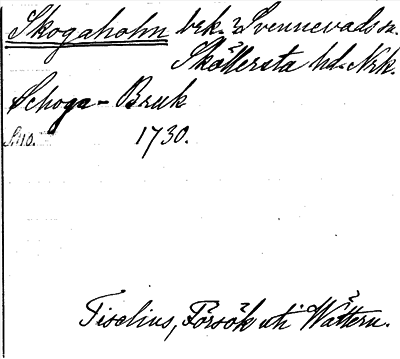 Skogaholm brk. i Svennevads sn.
Skållersta hd. Nrk.
Schoga-Bruk
S. 110. 1730.
Tiselius, Försök uti Wättern.